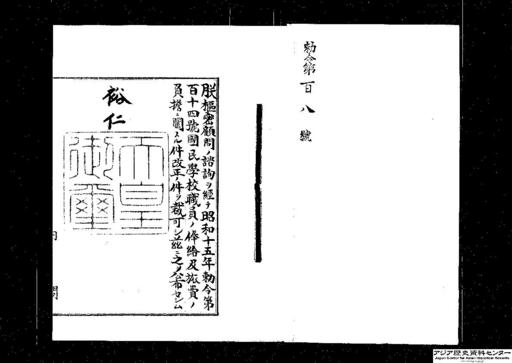 勅令第百八號
朕樞密顧問ノ諮詢ヲ經テ昭和十五年勅令第
百十四號國民學校職員ノ俸給及旅費ノ
負擔ニ關スル件改正ノ件ヲ裁可シ茲ニ之ヲ公布セシム
裕仁
天皇御璽
内 閣
アジア歴史資料センター
Japan Center for Asian Historical Records